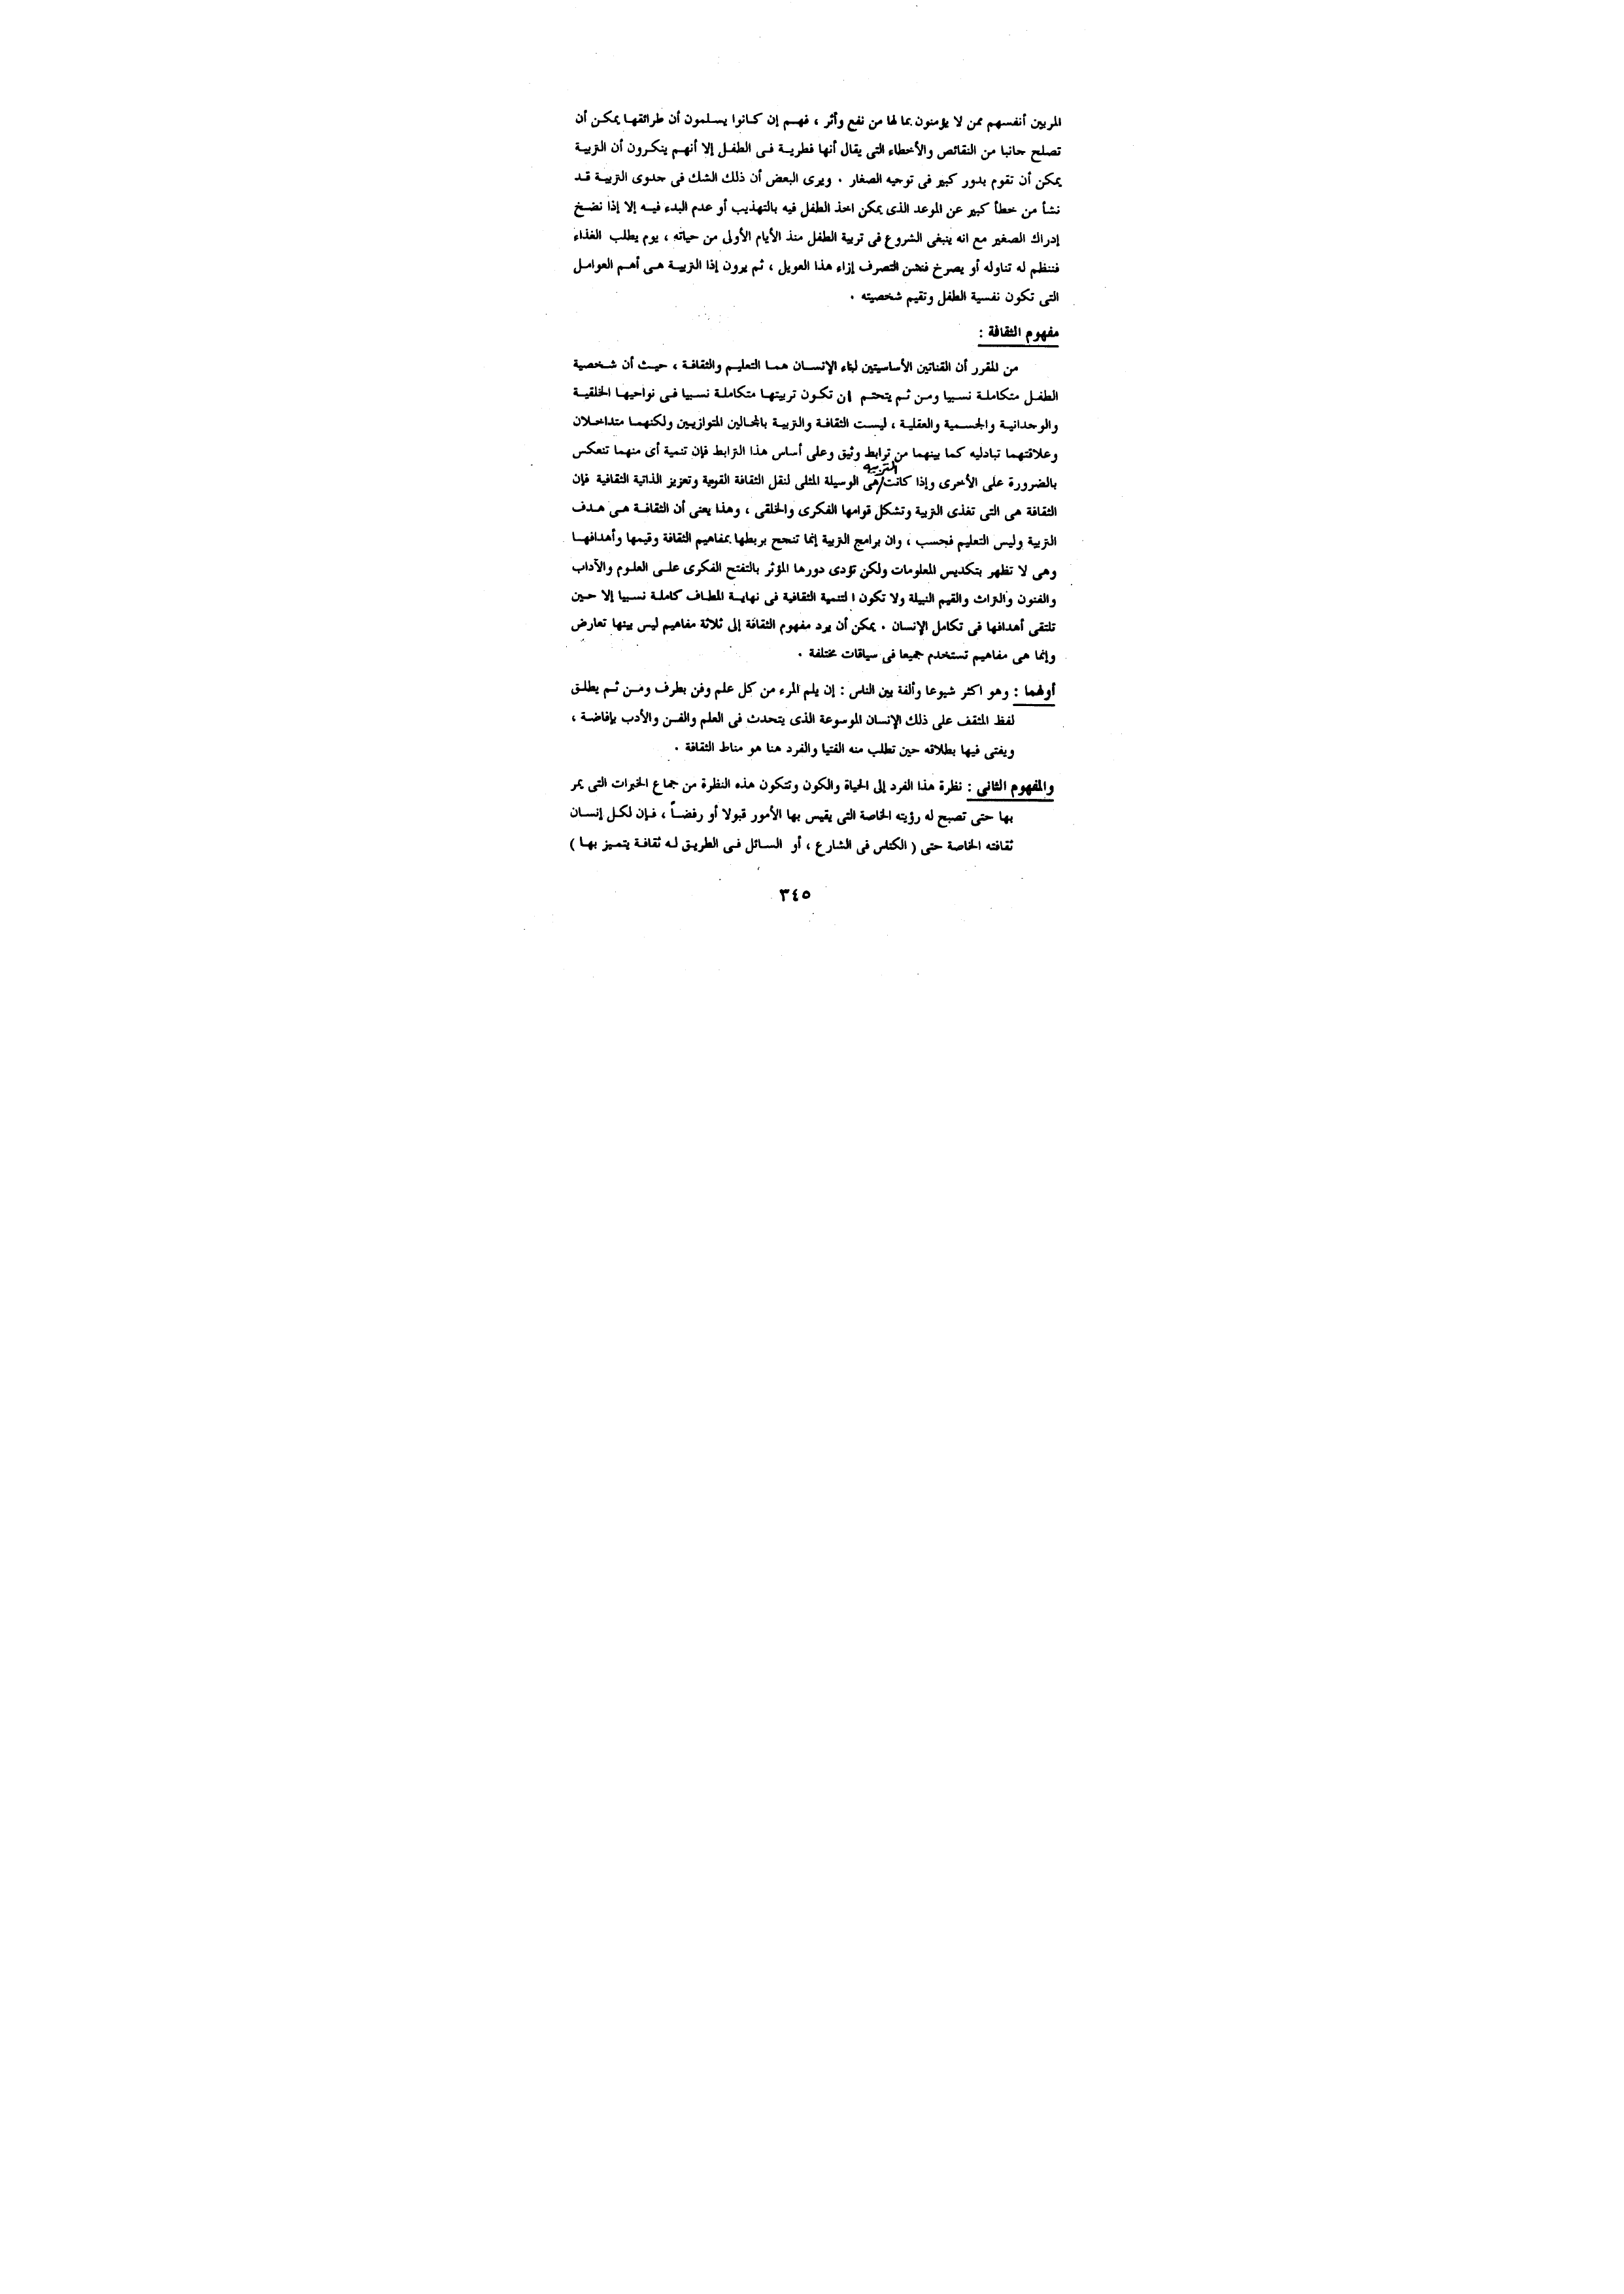 المربين أنفسهم ممن لا يؤمنون بما لها من نفع وأثر ، فهم إن كانوا يسلمون أن طرائقها يمكن أن
تصلح جانبا من النقائص والأخطاء التى يقال أنها فطرية فى الطفل إلا أنهم ينكرون أن التربية
يمكن أن تقوم بدور كبير فى توجيه الصغار . ويرى البعض أن ذلك الشك فى جدوى التربية قد
نشأ من خطأ كبير عن الموعد الذى يمكن اخذ الطفل فيه بالتهذيب أو عدم البدء فيه إلا إذا نضج
إدراك الصغير مع انه ينبغى الشروع فى تربية الطفل منذ الأيام الأولى من حياته ، يوم يطلب الغذاء
فننظم له تناوله أو يصرخ التصرف إزاء هذا العويل ، ثم يرون إذا التربية هى أهم العوامل
التى تكون نفسية الطفل وتقيم شخصيته .
مفهوم الثقافة :
من المقرر أن القناتين الأساسيتين لبناء الإنسان هما التعليم والثقافة ، حيث أن شخصية
الطفل متكاملة نسبيا ومن ثم يتحتم ان تكون تربيتها متكاملة نسبيا فى نواحيها الخلقية
والوجدانية والجسمية والعقلية ، ليست الثقافة والتربية بالمجالين المتوازيين ولكنهما متداخلان
وعلاقتهما تبادليه كما بينهما من ترابط وثيق وعلى أساس هذا الترابط فإن تنمية أى منهما تنعكس
بالضرورة على الأخرى وإذا كانت/ التربيه هى الوسيلة المثلى لنقل الثقافة القومية وتعزيز الذاتية الثقافية فإن
الثقافة هى التى تغذى التربية وتشكل قوامها الفكرى والخلقى ، وهذا يعنى أن الثقافة هى هدف
التربية وليس التعليم فحسب ، وان برامج التربية إنما تنجح بربطها بمفاهيم الثقافة وقيمها وأهدافها
وهى لا تظهر بتكديس المعلومات ولكن تؤدى دورها المؤثر بالتفتح الفكرى على العلوم والآداب
والفنون والتراث والقيم النبيلة ولا تكون التنمية الثقافية فى نهاية المطاف كاملة نسبيا إلا حين
تلتقى أهدافها فى تكامل الإنسان . يمكن أن يرد مفهوم الثقافة إلى ثلاثة مفاهيم ليس بينها تعارض
وإنما هى مفاهيم تستخدم جميعا فى سياقات مختلفة .
أولهما : وهو اكثر شيوعا وألفة بين الناس : إن يلم المرء من كل علم وفن بطرف ومن ثم يطلق
لفظ المثقف على ذلك الإنسان الموسوعة الذى يتحدث فى العلم والفن والأدب بإفاضة ،
ويفتى فيها بطلاقه حين تطلب منه الفتيا والفرد هنا هو مناط الثقافة .
والمفهوم الثانى : نظرة هذا الفرد إلى الحياة والكون وتتكون هذه النظرة من جماع الخبرات التى يمر
بها حتى تصبح له رؤيته الخاصة التى يقيس بها الأمور قبولا أو رفضاً ، فإن لكل إنسان
ثقافته الخاصة حتى ( الكناس فى الشارع ، أو السائل فى الطريق له ثقافة يتميز بها )
٣٤٥